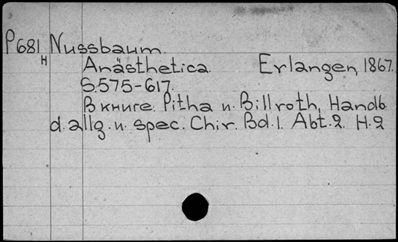 P681 Nussbaum.
H
Anästhetica. Erlangen, 1867.
S.575-617.
В книге. Pitha и. Billroth, Handb
d. allg. u. spec. Chir. Bd.1. Abt.2. H.2